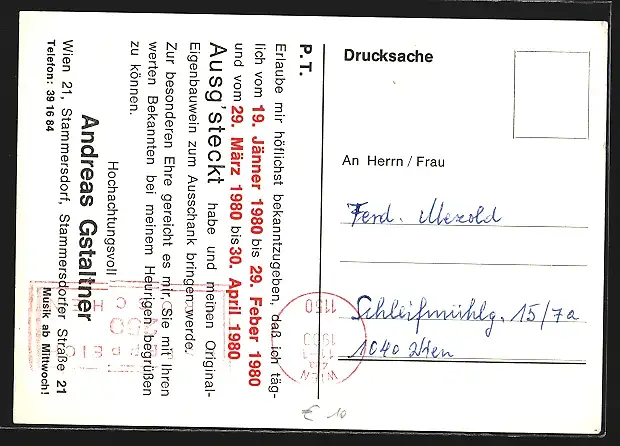 P.T.
Erlaube mir höflichst bekanntzugeben, daß ich täg-
lich vom 19. Jänner 1980 bis 29. Feber 1980
und vom 29. März 1980 bis 30. April 1980
Ausg'steckt habe und meinen Original-
Eigenbauwein zum Ausschank bringen werde.
Zur besonderen Ehre gereicht es mir, Sie mit Ihren
werten Bekannten bei meinem Heurigen begrüßen
zu können.
Hochachtungsvoll
Andreas Gstaltner
Wien 21, Stammersdorf, Stammersdorfer Straße 21
Telefon: 39 16 84 Musik ab Mittwoch!
Drucksache
An Herrn / Frau
Ferd.
Schleifmühlg. 15/7a
1040 Wien
1150
WIEN
€ 10